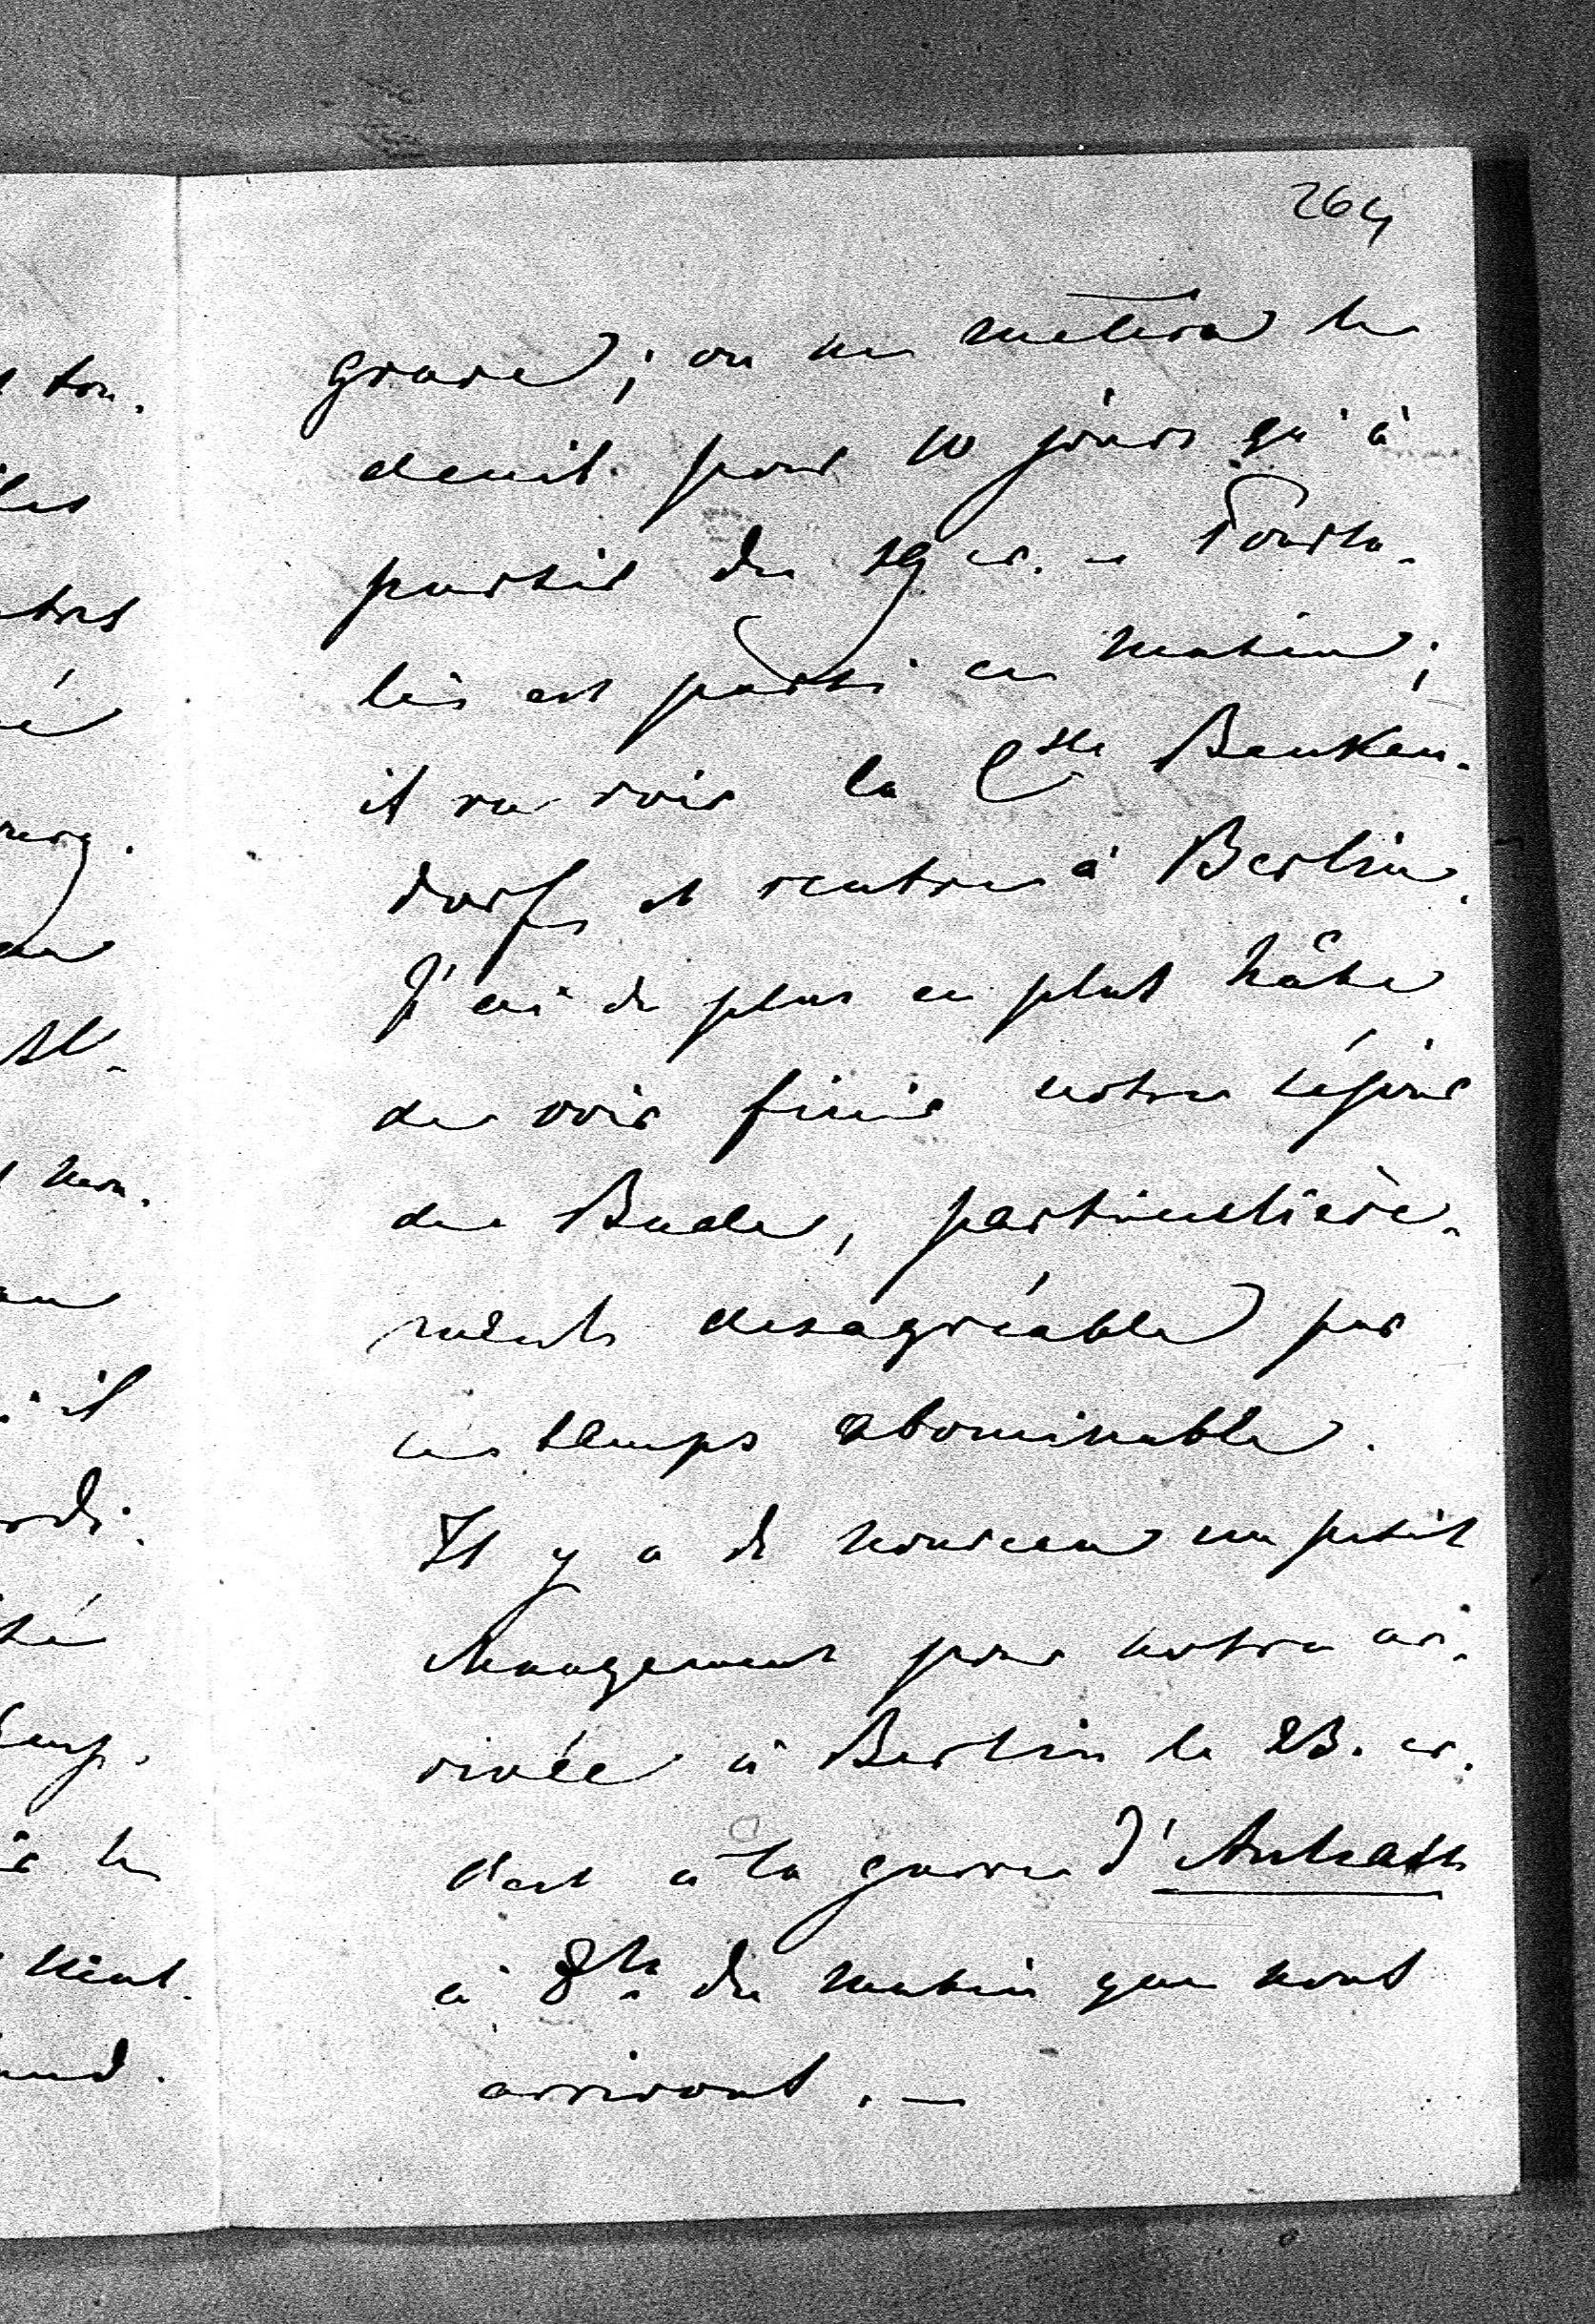 264
grave; on ne mettra le
deuil pour 10 jours qu'à
partir du 19 cr. – Pourta-
lès est parti ce matin;
il va voir la Ctsse Benken-
dorff et rentre à Berlin.
J'ai de plus en plus hâte
de voir finir notre séjour
de Bade, particulière-
ment desagréable par
ce temps abominable.
Il y a de nouveau un petit
changement pour notre ar-
rivée à Berlin le 23. cr.
c'est à la garre d'Anhalt
à 8h du matin que nous
arrivons. –
ton.
les
il